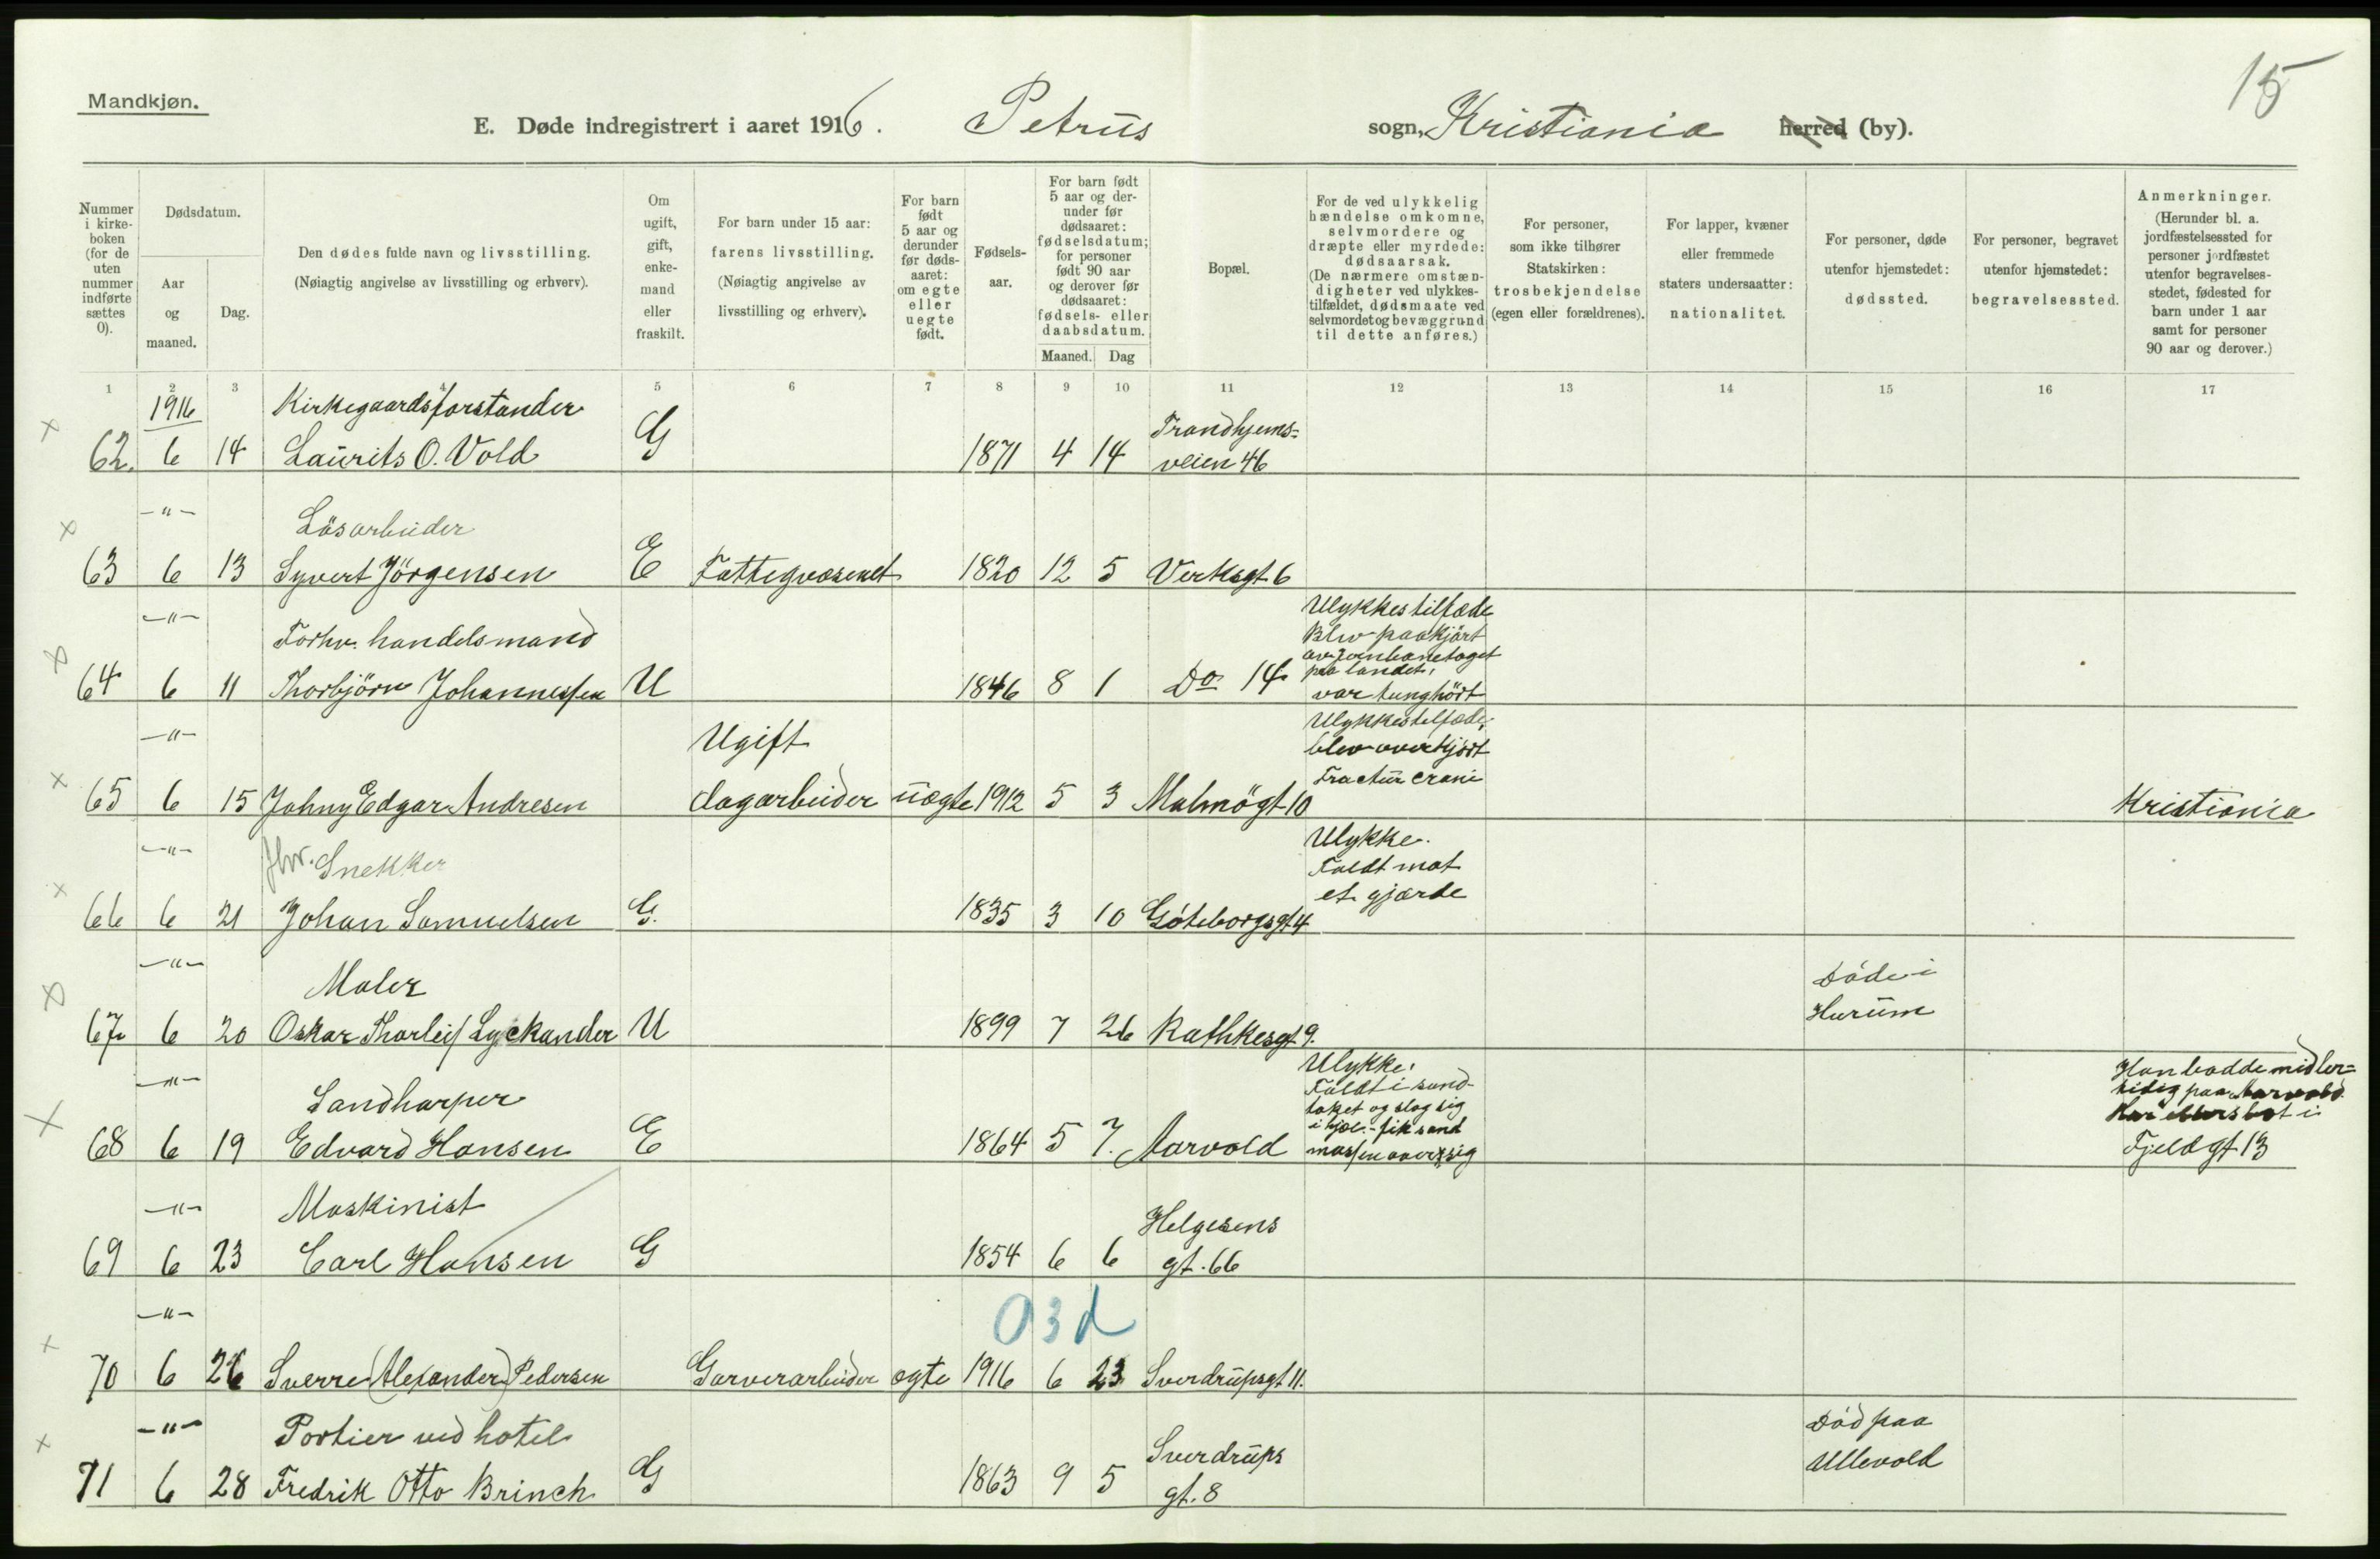 15
Mandkjøn.
E. Døde indregistrert i aaret 1916. Petrus sogn, Kristiania herred (by).
Nummer i kirke-boken (for de uten nummer indførte sættes 0).
Dødsdatum.
Aar og maaned.
Dag.
Den dødes fulde navn og livsstilling.
(Nøiagtig angivelse av livsstilling og erhverv).
Om ugift, gift, enke-mand eller fraskilt.
For barn under 15 aar:
farens livsstilling.
(Nøiagtig angivelse av livsstilling og erhverv).
For barn født 5 aar og derunder før døds-aaret: om egte eller uegte født.
Fødsels-aar.
For barn født 5 aar og der-under før dødsaaret: fødselsdatum; for personer født 90 aar og derover før dødsaaret: fødsels- eller daabsdatum.
Maaned. Dag
Bopæl.
For de ved ulykkelig hændelse omkomne, selvmordere og dræpte eller myrdede: dødsaarsak.
(De nærmere omstæn-digheter ved ulykkes-tilfældet, dødsmaate ved selvmordet og bevæggrund til dette anføres.)
For personer, som ikke tilhører Statskirken: trosbekjendelse (egen eller forældrenes).
For lapper, kvæner eller fremmede staters undersaatter: nationalitet.
For personer, døde utenfor hjemstedet: dødssted.
For personer, begravet utenfor hjemstedet: begravelsessted.
Anmerkninger.
(Herunder bl. a. jordfæstelsessted for personer jordfæstet utenfor begravelses-stedet, fødested for barn under 1 aar samt for personer 90 aar og derover.)
1 2 3 5 6 7 8 9 10 11 12 13 14 15 16 17
1916 Kirkegaardsforstander Trondhjems=
62. 6 14 Laurits O. Vold G 1871 4 14 veien 46
-"- Lösarbeider
63 6 13 Syvert Jörgensen E Fattigvæsenet 1820 12 5 Verksgt 6
-"- Forhv. handelsmand
64 6 11 Thorbjörn Johannessen U 1846 8 1 Do 14
Ulykkestilfæde
Blev paakjört
av jernbanetoget
paa landet,
var tunghört
-"- Ugift
65 6 15 Johny Edgar Andresen dagarbeider uegte 1912 5 3 Malmögt 10 Kristiania
Ulykkestilfæde,
blev overkjört
Fractur crani
-"- fhv. Snekker
66 6 21 Johan Samuelsen G. 1835 3 10 Göteborgsgt 4
Ulykke.
Faldt mot
et gjærde
-"- Maler Döde i
67 6 20 Oskar Thorleif Lyckander U 1899 7 26 Rathkesgt 9. Hurum
-"- Sandharper
68 6 19 Edvard Hansen E 1864 5 7. Aarvold
Ulykke.
Faldt i sand-
taket og slog sig
i hjel - fik sand
massen over sig
Han bodde midler=
tidig paa Aarvold.
i
Fjeldgt 13
-"- Maskinist Helgesens
69 6 23 Carl Hansen G 1854 6 6 gt. 66
-"- 03d
70 6 26 Sverre (Alexander) Pedersen Garverarbeider egte 1916 6 23 Sverdrupsgt 11.
-"- Portier ved hotel Sverdrups Död paa
71 6 28 Fredrik Otto Brinch G 1863 9 5 gt. 8 Ullevold